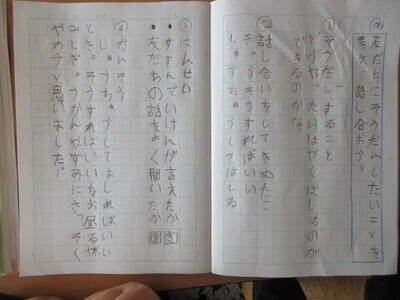 友だちにそうだんしたいことを
考え、話し合おう。
① そうだんすること
どうやったらはやくはしるのが
できるのかな
② 話し合いをしてきめたこ
すればいい
してはしる
③ はんせい
・すすんでいけんが言えたか
・友だちの話をよく聞いたか
④ かんそう
ればいい
そうすればいい お昼る休
みと かんやすみにさっそく
やろうと思いました。